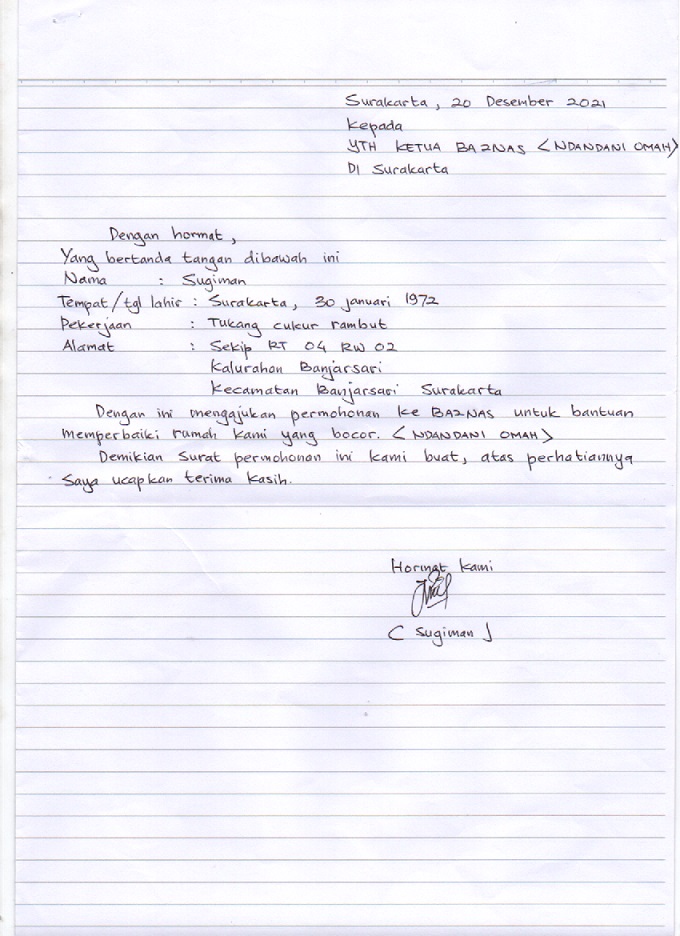 Surakarta, 20 Desember 2021
Kepada
YTH KETUA BAZNAS <NDANDANI OMAH>
DI Surakarta
Dengan hormat,
Yang bertanda tangan dibawah ini
Nama : Sugiman
Tempat/tgl lahir : Surakarta, 30 januari 1972
Pekerjaan : Tukang cukur rambut
Alamat : Sekip RT 04 RW 02
Kalurahan Banjarsari
Kecamatan Banjarsari Surakarta
Dengan ini mengajukan permohonan ke BAZNAS untuk bantuan
memperbaiki rumah kami yang bocor. <NDANDANI OMAH>
Demikian Surat permohonan ini kami buat, atas perhatiannya
Saya ucapkan terima kasih.
Hormat kami
( Sugiman )